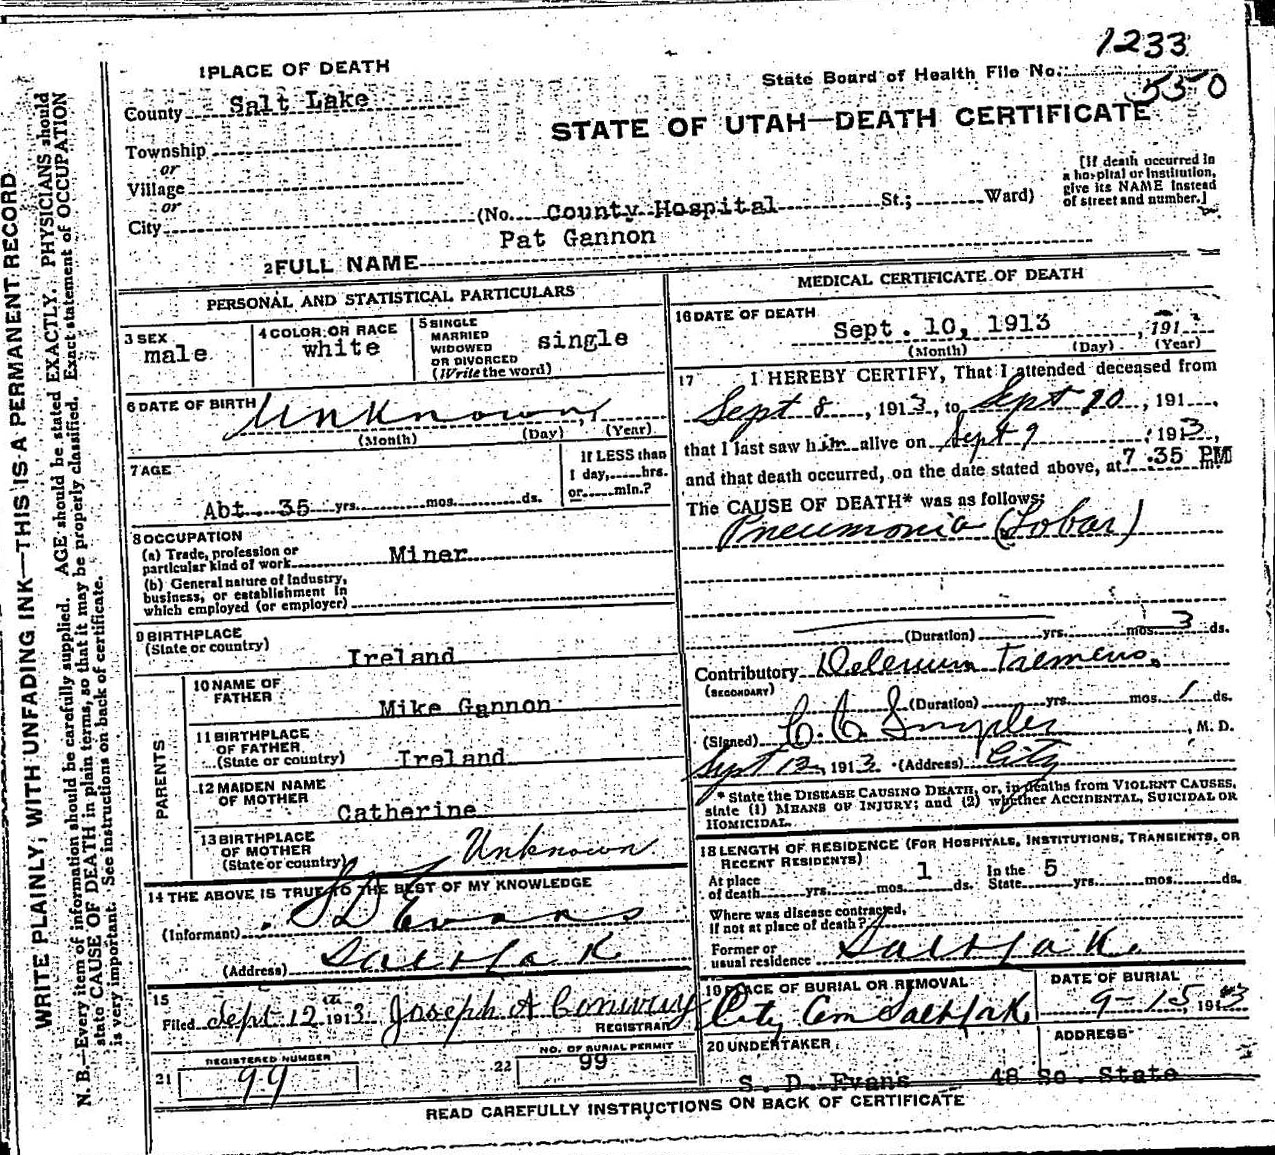 1233
State Board of Health File No.
550
STATE OF UTAH—DEATH CERTIFICATE
1 PLACE OF DEATH
County Salt Lake
Township
or
Village
or
City
(No. County Hospital St.; Ward)
[If death occurred in
a hospital or institution,
give its NAME instead
of street and number.]
Pat Gannon
2 FULL NAME
PERSONAL AND STATISTICAL PARTICULARS
3 SEX
male
4 COLOR OR RACE
white
5 SINGLE
MARRIED
WIDOWED
OR DIVORCED
(Write the word)
single
6 DATE OF BIRTH Unknown
(Month) (Day) (Year)
7 AGE
Abt. 35 yrs. mos. ds.
If LESS than
1 day, hrs.
or min.?
8 OCCUPATION
(a) Trade, profession or
particular kind of work Miner
(b) General nature of industry,
business, or establishment in
which employed (or employer)
9 BIRTHPLACE
(State or country)
Ireland
PARENTS
10 NAME OF
FATHER
Mike Gannon
11 BIRTHPLACE
OF FATHER
(State or country) Ireland
12 MAIDEN NAME
OF MOTHER
Catherine
13 BIRTHPLACE
OF MOTHER
(State or country) Unknown
14 THE ABOVE IS TRUE TO THE BEST OF MY KNOWLEDGE
(Informant) S D Evans
(Address) Salt Lake
15
Filed Sept 12 1913 Joseph A Conway
REGISTRAR
REGISTERED NUMBER
21 99
NO. OF BURIAL PERMIT
22 99
MEDICAL CERTIFICATE OF DEATH
16 DATE OF DEATH
Sept. 10, 1913 , 191
(Month) (Day) (Year)
17 I HEREBY CERTIFY, That I attended deceased from
Sept 8 , 1913, to Sept 10 , 191 ,
that I last saw him alive on Sept 9 , 1913,
and that death occurred, on the date stated above, at 7.35 PM m.
The CAUSE OF DEATH* was as follows:
Pneumonia (Lobar)
(Duration) yrs. mos. 3 ds.
Contributory Delerium Tremens.
(SECONDARY)
(Duration) yrs. mos. 1 ds.
(Signed) C. C. , M. D.
Sept 12, 1913. (Address) City
* State the DISEASE CAUSING DEATH, or, in deaths from VIOLENT CAUSES,
state (1) MEANS OF INJURY; and (2) whether ACCIDENTAL, SUICIDAL OR
HOMICIDAL.
18 LENGTH OF RESIDENCE (FOR HOSPITALS, INSTITUTIONS, TRANSIENTS, OR
RECENT RESIDENTS)
At place
of death yrs. mos. 1 ds.
In the
State 5 yrs. mos. ds.
Where was disease contracted,
if not at place of death?
Former or
usual residence Salt Lake.
19 PLACE OF BURIAL OR REMOVAL
City Cem Salt Lake
DATE OF BURIAL
9-15, 1913
20 UNDERTAKER
S. D. Evans
ADDRESS
48 So. State
READ CAREFULLY INSTRUCTIONS ON BACK OF CERTIFICATE
WRITE PLAINLY, WITH UNFADING INK—THIS IS A PERMANENT RECORD
N. B.—Every item of information should be carefully supplied. AGE should be stated EXACTLY. PHYSICIANS should
state CAUSE OF DEATH in plain terms, so that it may be properly classified. Exact statement of OCCUPATION
is very important. See instructions on back of certificate.